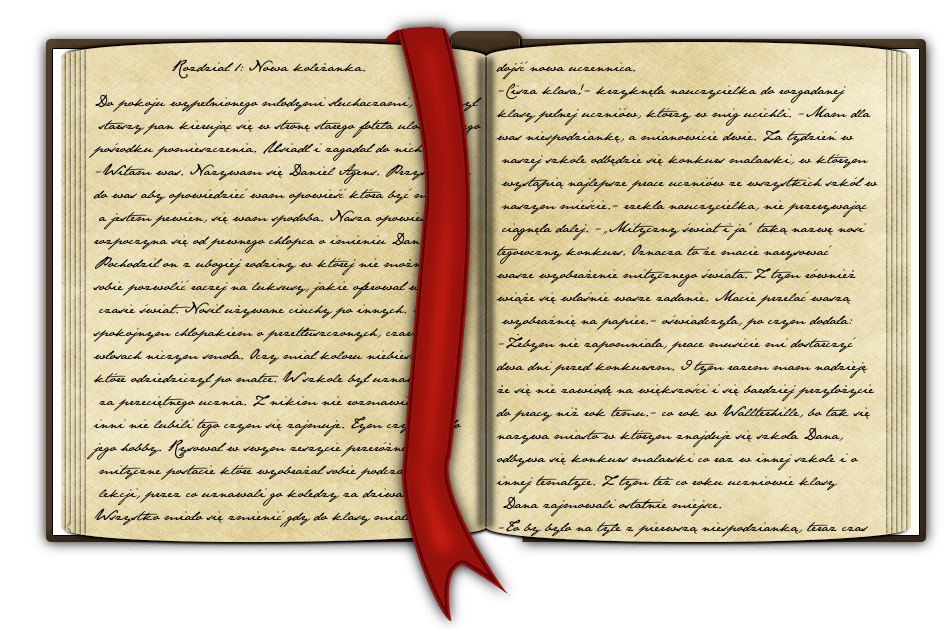 Rozdział 1: Nowa koleżanka.
Do pokoju wypełnionego młodymi słuchaczami,
starszy pan kierując się w stronę starego fotela
pośrodku pomieszczenia. Usiadł i zagadał do nich
-Witam was. Nazywam się Daniel Agens.
do was aby opowiedzieć wam opowieść która być
a jestem pewien, się wam spodoba. Nasza
rozpoczyna się od pewnego chłopca o imieniu Dan
Pochodził on z ubogiej rodziny w której nie
sobie pozwolić raczej na luksusy, jakie oferował
czasie świat. Nosił używane ciuchy po innych.
spokojnym chłopakiem o przetłuszczonych,
włosach niczym smoła. Oczy miał koloru
które odziedziczył po matce. W szkole był
za przeciętnego ucznia. Z nikim nie
inni nie lubili tego czym się zajmuje. Tym
jego hobby. Rysował w swym zeszycie
mityczne postacie które wyobrażał sobie
lekcji, przez co uznawali go koledzy za
Wszystko miało się zmienić gdy do klasy
dojść nowa uczennica.
-Cisza klasa!- krzyknęła nauczycielka do rozgadanej
klasy pełnej uczniów, którzy w mig ucichli. -Mam dla
was niespodziankę, a mianowicie dwie. Za tydzień w
naszej szkole odbędzie się konkurs malarski, w którym
wystąpią najlepsze prace uczniów ze wszystkich szkół w
naszym mieście.- rzekła nauczycielka, nie przerywając
ciągnęła dalej. -„Mityczny świat i ja" taką nazwę nosi
tegoroczny konkurs. Oznacza to że macie narysować
wasze wyobrażenie mitycznego świata. Z tym również
wiąże się właśnie wasze zadanie. Macie przelać waszą
wyobraźnię na papier.- oświadczyła, po czym dodała:
-Żebym nie zapomniała, prace musicie mi dostarczyć
dwa dni przed konkursem. I tym razem mam nadzieję
że się nie zawiodę na większości i się bardziej przyłożycie
do pracy niż rok temu.- co rok w Wallterhille, bo tak się
nazywa miasto w którym znajduje się szkoła Dana,
odbywa się konkurs malarski co raz w innej szkole i o
innej tematyce. Z tym też co roku uczniowie klasy
Dana zajmowali ostatnie miejsce.
-To by było na tyle z pierwszą niespodzianką, teraz czas